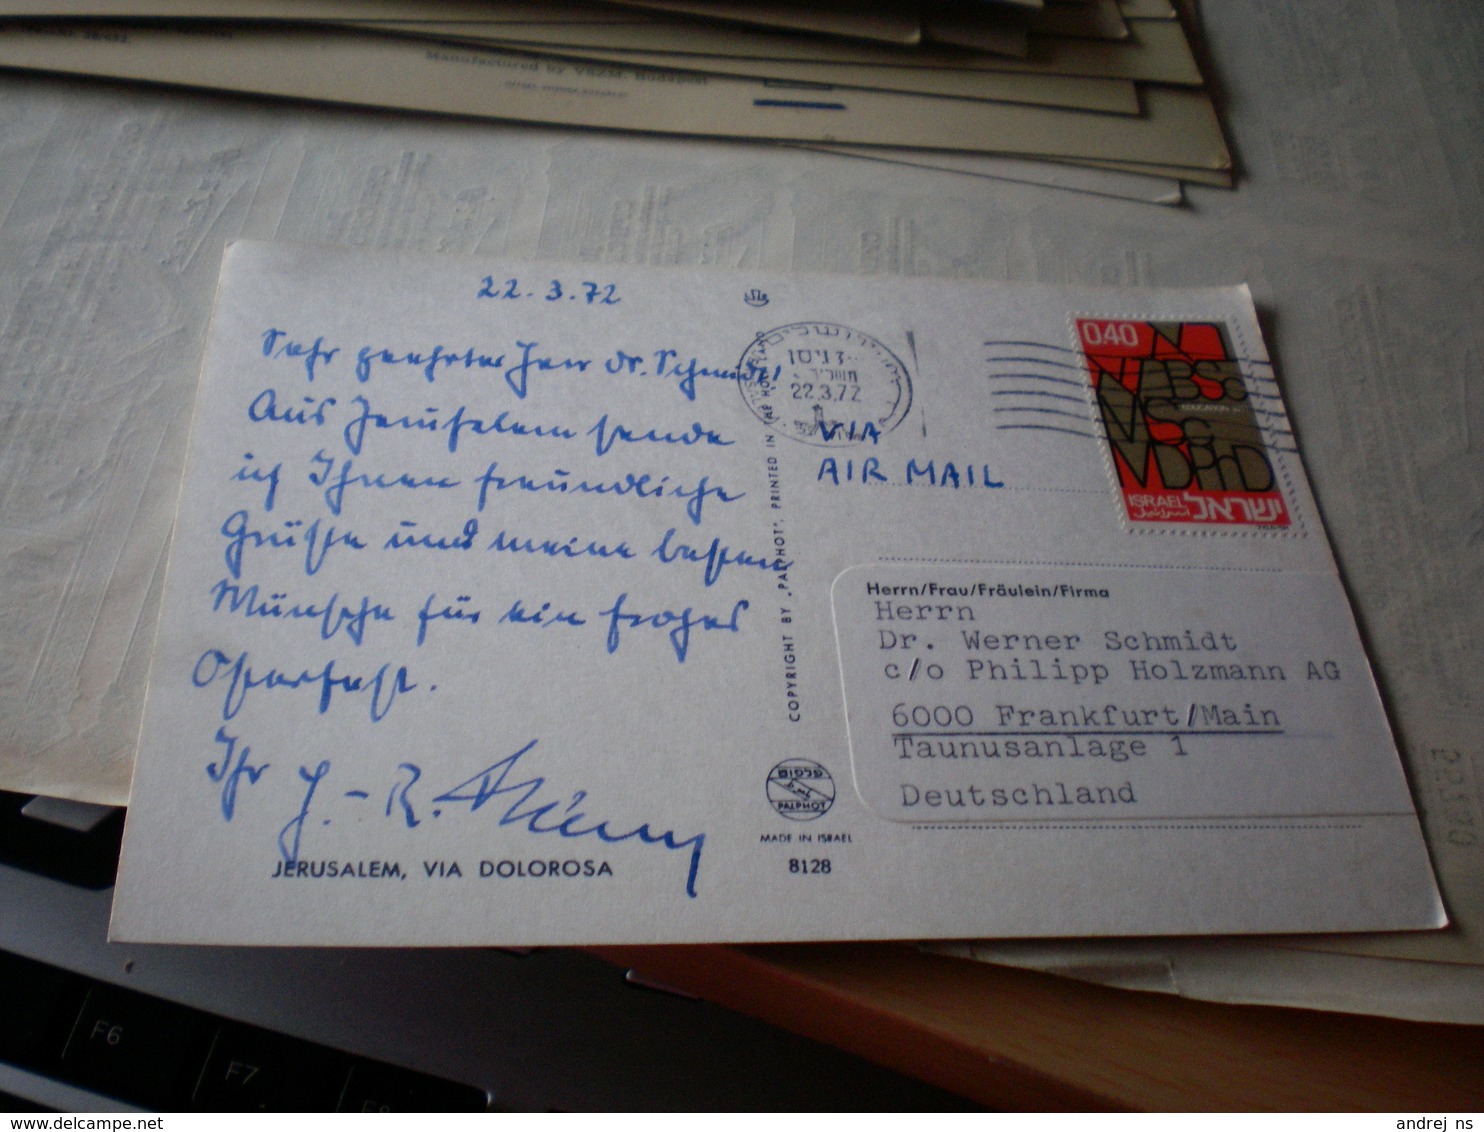 Manufactured by VSZM. Budapest
22.3.72
Sehr geehrter Herr Dr. Schmidt!
Aus Jerusalem sende
ich Ihnen freundliche
Grüße und meine besten
Wünsche für ein frohes
Osterfest.
Ihr
JERUSALEM, VIA DOLOROSA
COPYRIGHT BY "PALPHOT", PRINTED IN THE HOLY LAND
ירושלים
ניסן
22.3.72
VIA
AIR MAIL
0.40
MA BSc
EDUCATION
MSc
MD PhD
ISRAEL ישראל
اسرائيل
Herrn/Frau/Fräulein/Firma
Herrn
Dr. Werner Schmidt
c/o Philipp Holzmann AG
6000 Frankfurt/Main
Taunusanlage 1
Deutschland
פלפוט
PALPHOT
MADE IN ISRAEL
8128
F6
F7
F8
andrej_ns
delcampe.net